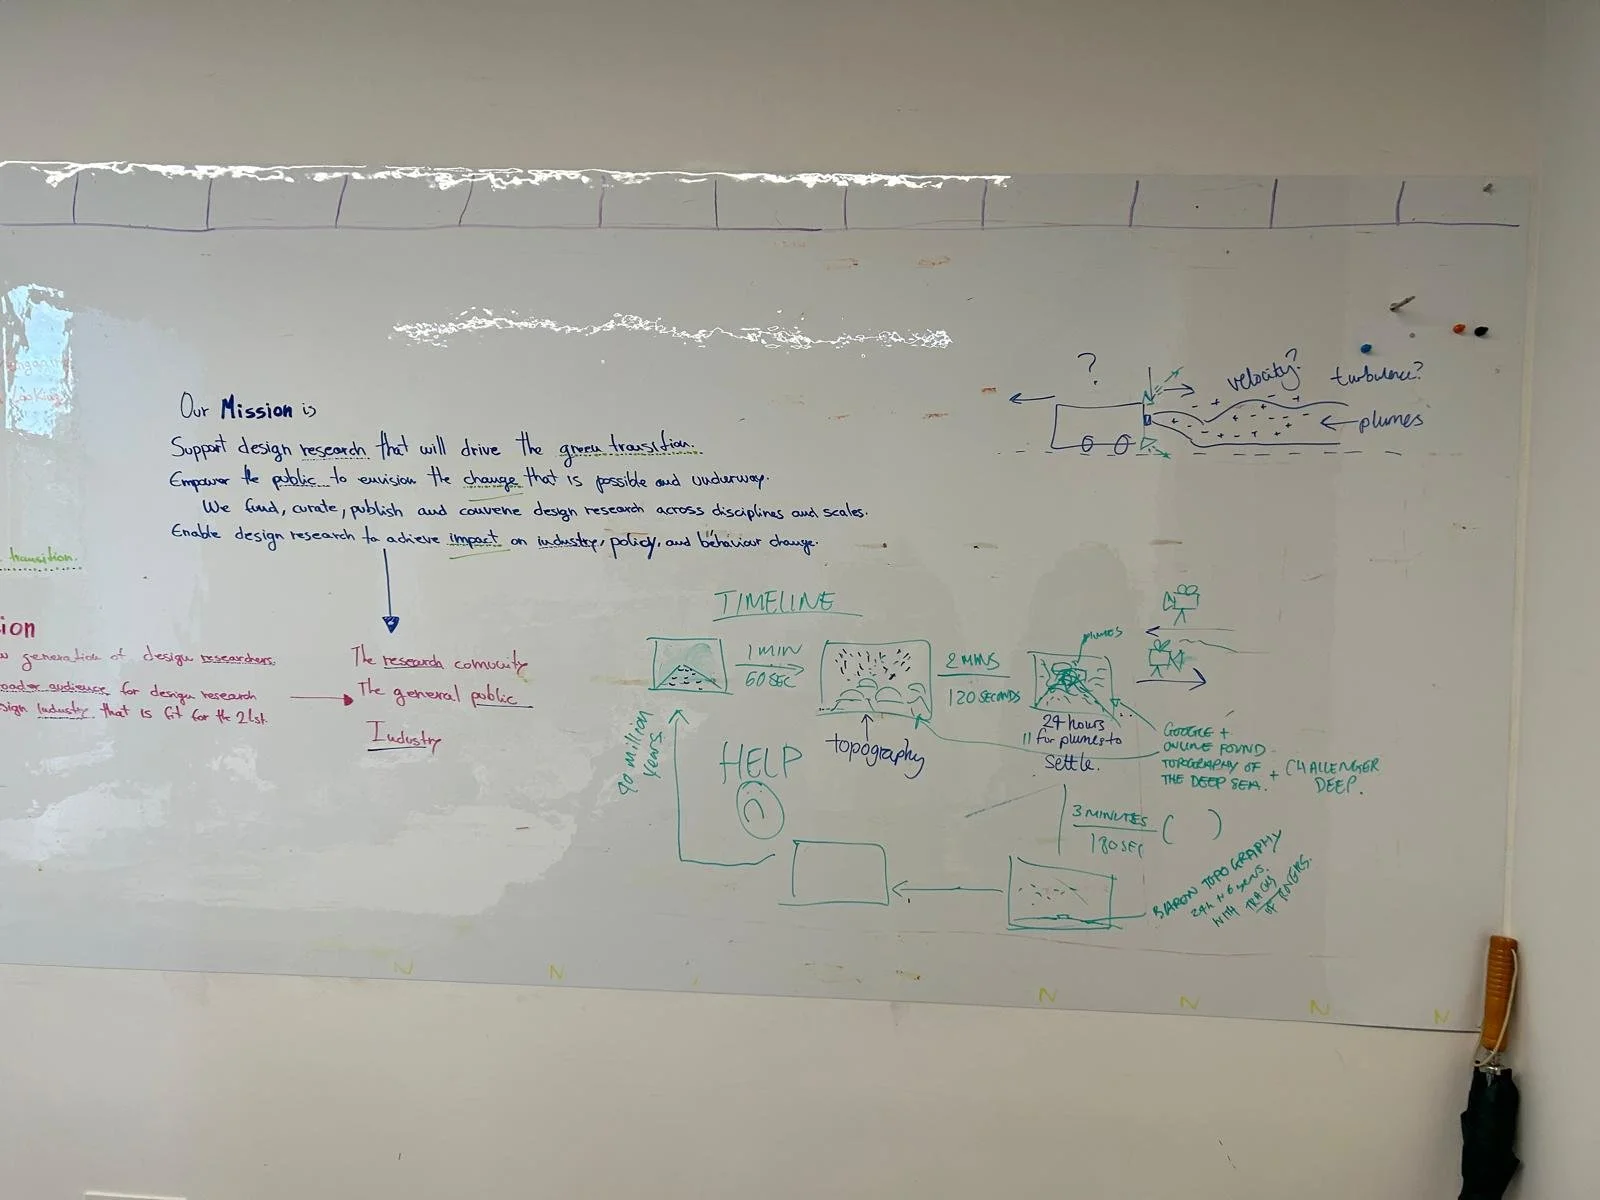 Our Mission is
Support design research that will drive the green transition.
Empower the public to envision the change that is possible and underway.
We fund, curate, publish and convene design research across disciplines and scales.
Enable design research to achieve impact on industry, policy, and behaviour change.
transition.
ion
generation of design researchers.
oader audience for design research
sign Industry that is fit for the 21st.
The research comunity
The general public
Industry
?
velocity?
turbulence?
plumes
TIMELINE
1 MIN
60 SEC
2 MINS
120 SECONDS
plumes
topography
24 hours
11 for plumes to
settle.
GOOGLE +
ONLINE FOUND
TOPOGRAPHY OF
THE DEEP SEA.
+ CHALLENGER
DEEP.
90 million
years
HELP
3 MINUTES
180 SEC
( )
BARON TOPOGRAPHY
24h to 6 years.
WITH TRACKS
OF
N
N
N
N
N
N